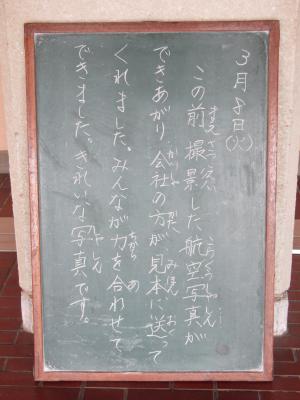 3月8日(火)
この前撮影した航空写真が
できあがり、会社の方が見本に送って
くれました。みんなが力を合わせて
できました。きれいな写真です。